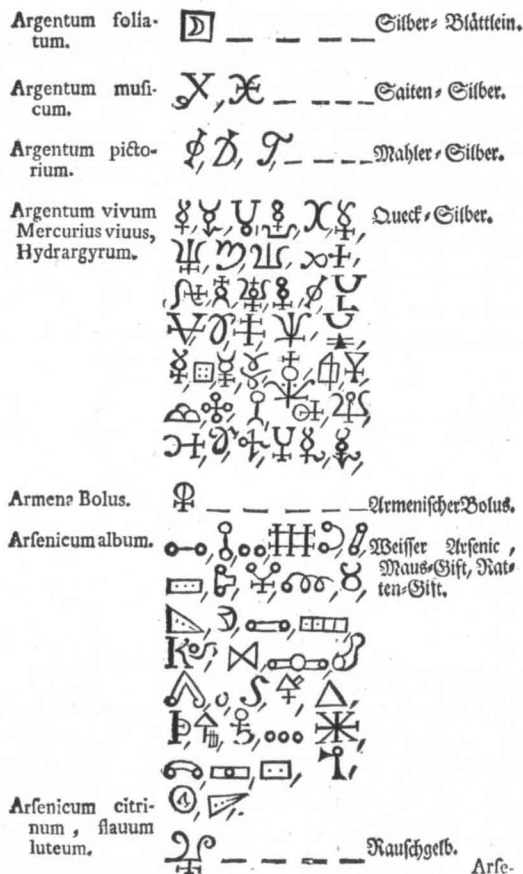 Argentum folia- Silber⸗Blättlein.
tum.
Argentum muſi- Saiten⸗Silber.
cum.
Argentum picto- Mahler⸗Silber.
rium.
Argentum vivum Queck⸗Silber.
Mercurius viuus,
Hydrargyrum.
Armen? Bolus. Armeniſcher Bolus.
Arſenicum album. Weiſſer Arſenic,
Maus⸗Gift, Rat⸗
ten⸗Gift.
Arſenicum citri-
num, flauum
luteum. Rauſchgelb.
Arſe-